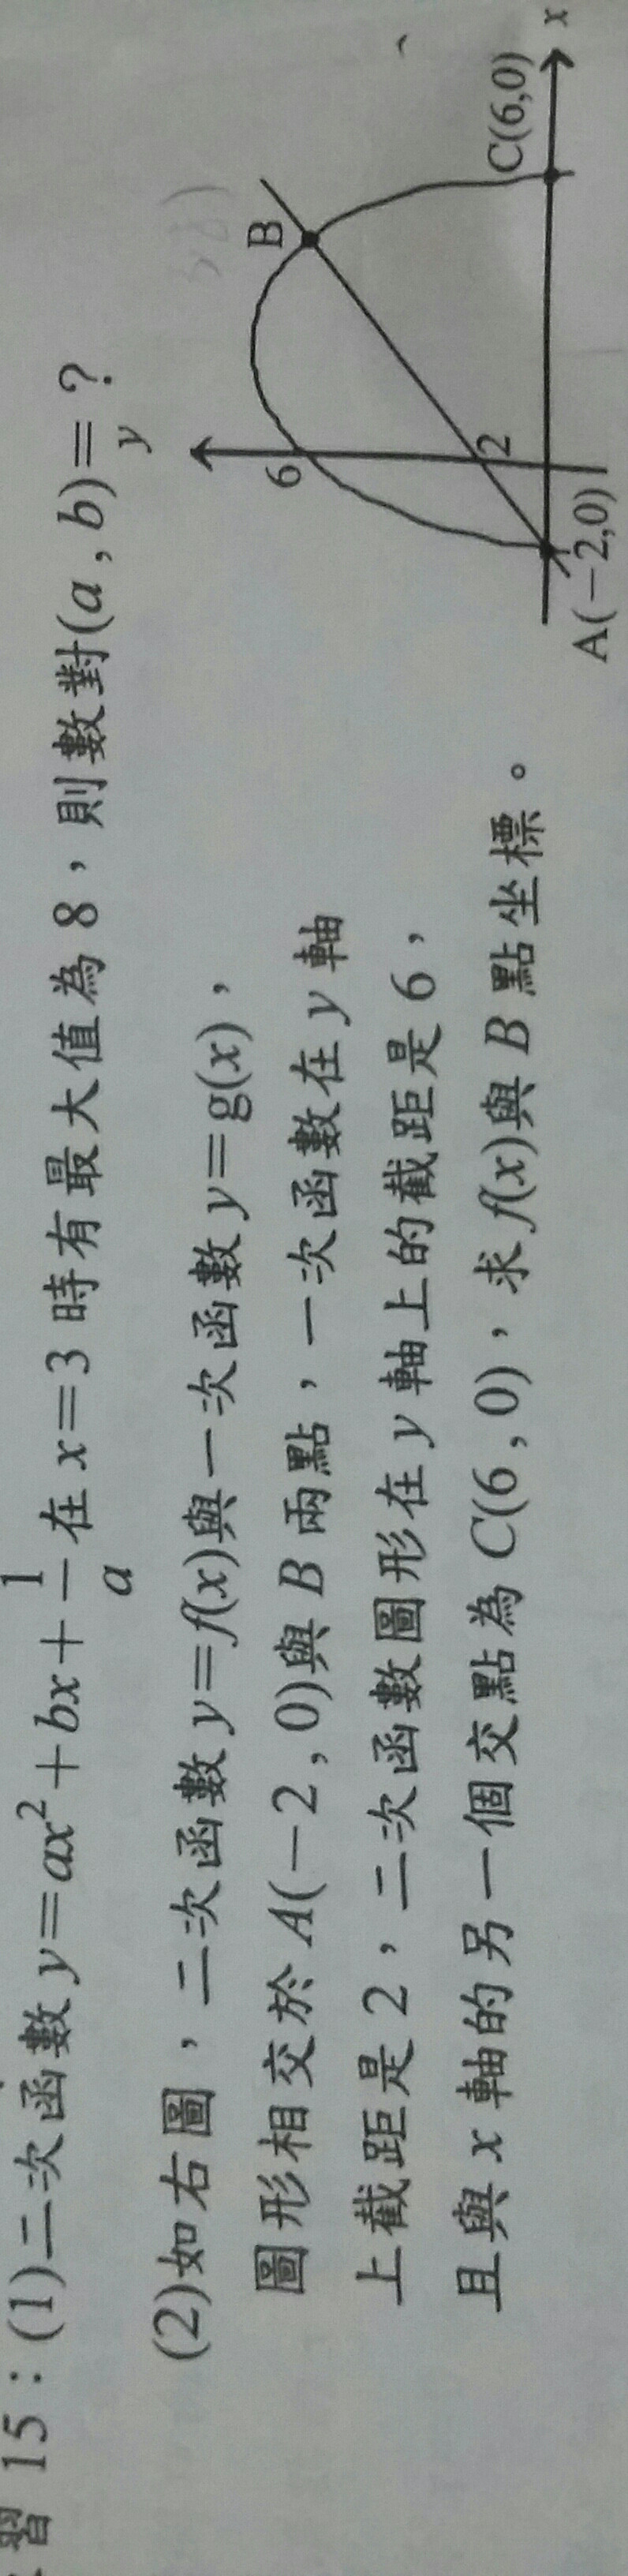 習 15：(1)二次函數 y=ax²+bx+1/a 在 x=3 時有最大值為 8，則數對(a , b)=？
(2)如右圖，二次函數 y=f(x)與一次函數 y=g(x)，
圖形相交於 A(−2 , 0)與 B 兩點，一次函數在 y 軸
上截距是 2，二次函數圖形在 y 軸上的截距是 6，
且與 x 軸的另一個交點為 C(6 , 0)，求 f(x)與 B 點坐標。
y
6
B
2
A(−2,0)
C(6,0)
x